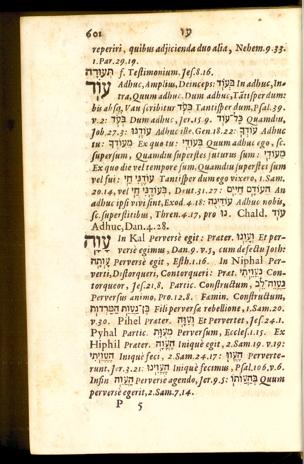 601 עו
reperiri, quibus adjicienda duo alia, Nehem. 9. 33.
1. Par. 29. 19.
תְּעוּדָה f. Testimonium. Jes. 8. 16.
עוֹד Adhuc, Amplius, Deinceps: בְּעוֹד In adhuc, In-
tra, Quum adhuc. Dum adhuc, Tātisper dum:
bis absq, Vau scribitur Tantisper dum, Psal. 39.
v. 2: Dum adhuc, Jer. 15. 9. כָּל־עוֹד Quamdiu,
Job. 27. 3: Adhuc ille. Gen. 18. 22: Adhuc
Ex quo tu: Quum adhuc ego, sc.
supersum, Quamdiu superstes futurus sum:
Ex quo die vel tempore sum. Quamdiu superstes sum
vel sui: Tantisper dum ego vixero, 1. Sam.
20. 14, vel Deut. 31. 27: An
adhuc ipsi vivi sint, Exod. 4. 18: Adhuc nobis,
sc. superstitibus, Thren. 4. 17, pro Chald.
Adhuc, Dan. 4. 28.
עָוָה In Kal Perversè egit: Prater. Et per-
versè egimus, Dan. 9. v. 5, cum defectu Joth:
Perversè egit, Esth. 1. 16. In Niphal Per-
verti, Distorqueri, Contorqueri: Prat. Con-
torqueor, Jes. 21. 8, Partic. Constructum,
Perversus animo, Pro. 12. 8. Famin. Constructum,
Filii perversa rebellione, 1. Sam. 20.
v. 30. Pihel Prater. Et Pervertet, Jes. 24. 1.
Pyhal Partic. Perversum, Ecclef. 1. 15. Ex
Hiphil Prater. Iniquè egit, 2. Sam. 19. v. 19.
Iniquè feci, 2. Sam. 24. 17: Perverte-
runt, Jer. 3. 21: Iniquè fecimus, Psal. 106. v. 6.
Infin Perversè agendo, Jer. 9. 5: Quum
perversè egerit, 2. Sam. 7. 14.
P 5